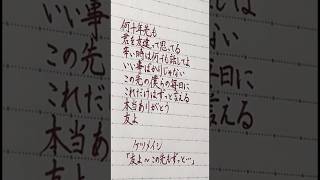 何十年先も
君を友達って思ってる
辛い時は何でも話してよ
いい事ばかりじゃない
この先の僕らの毎日に
これだけはずっと言える
本当ありがとう
友よ
ケツメイシ
「友よ～この先もずっと…」